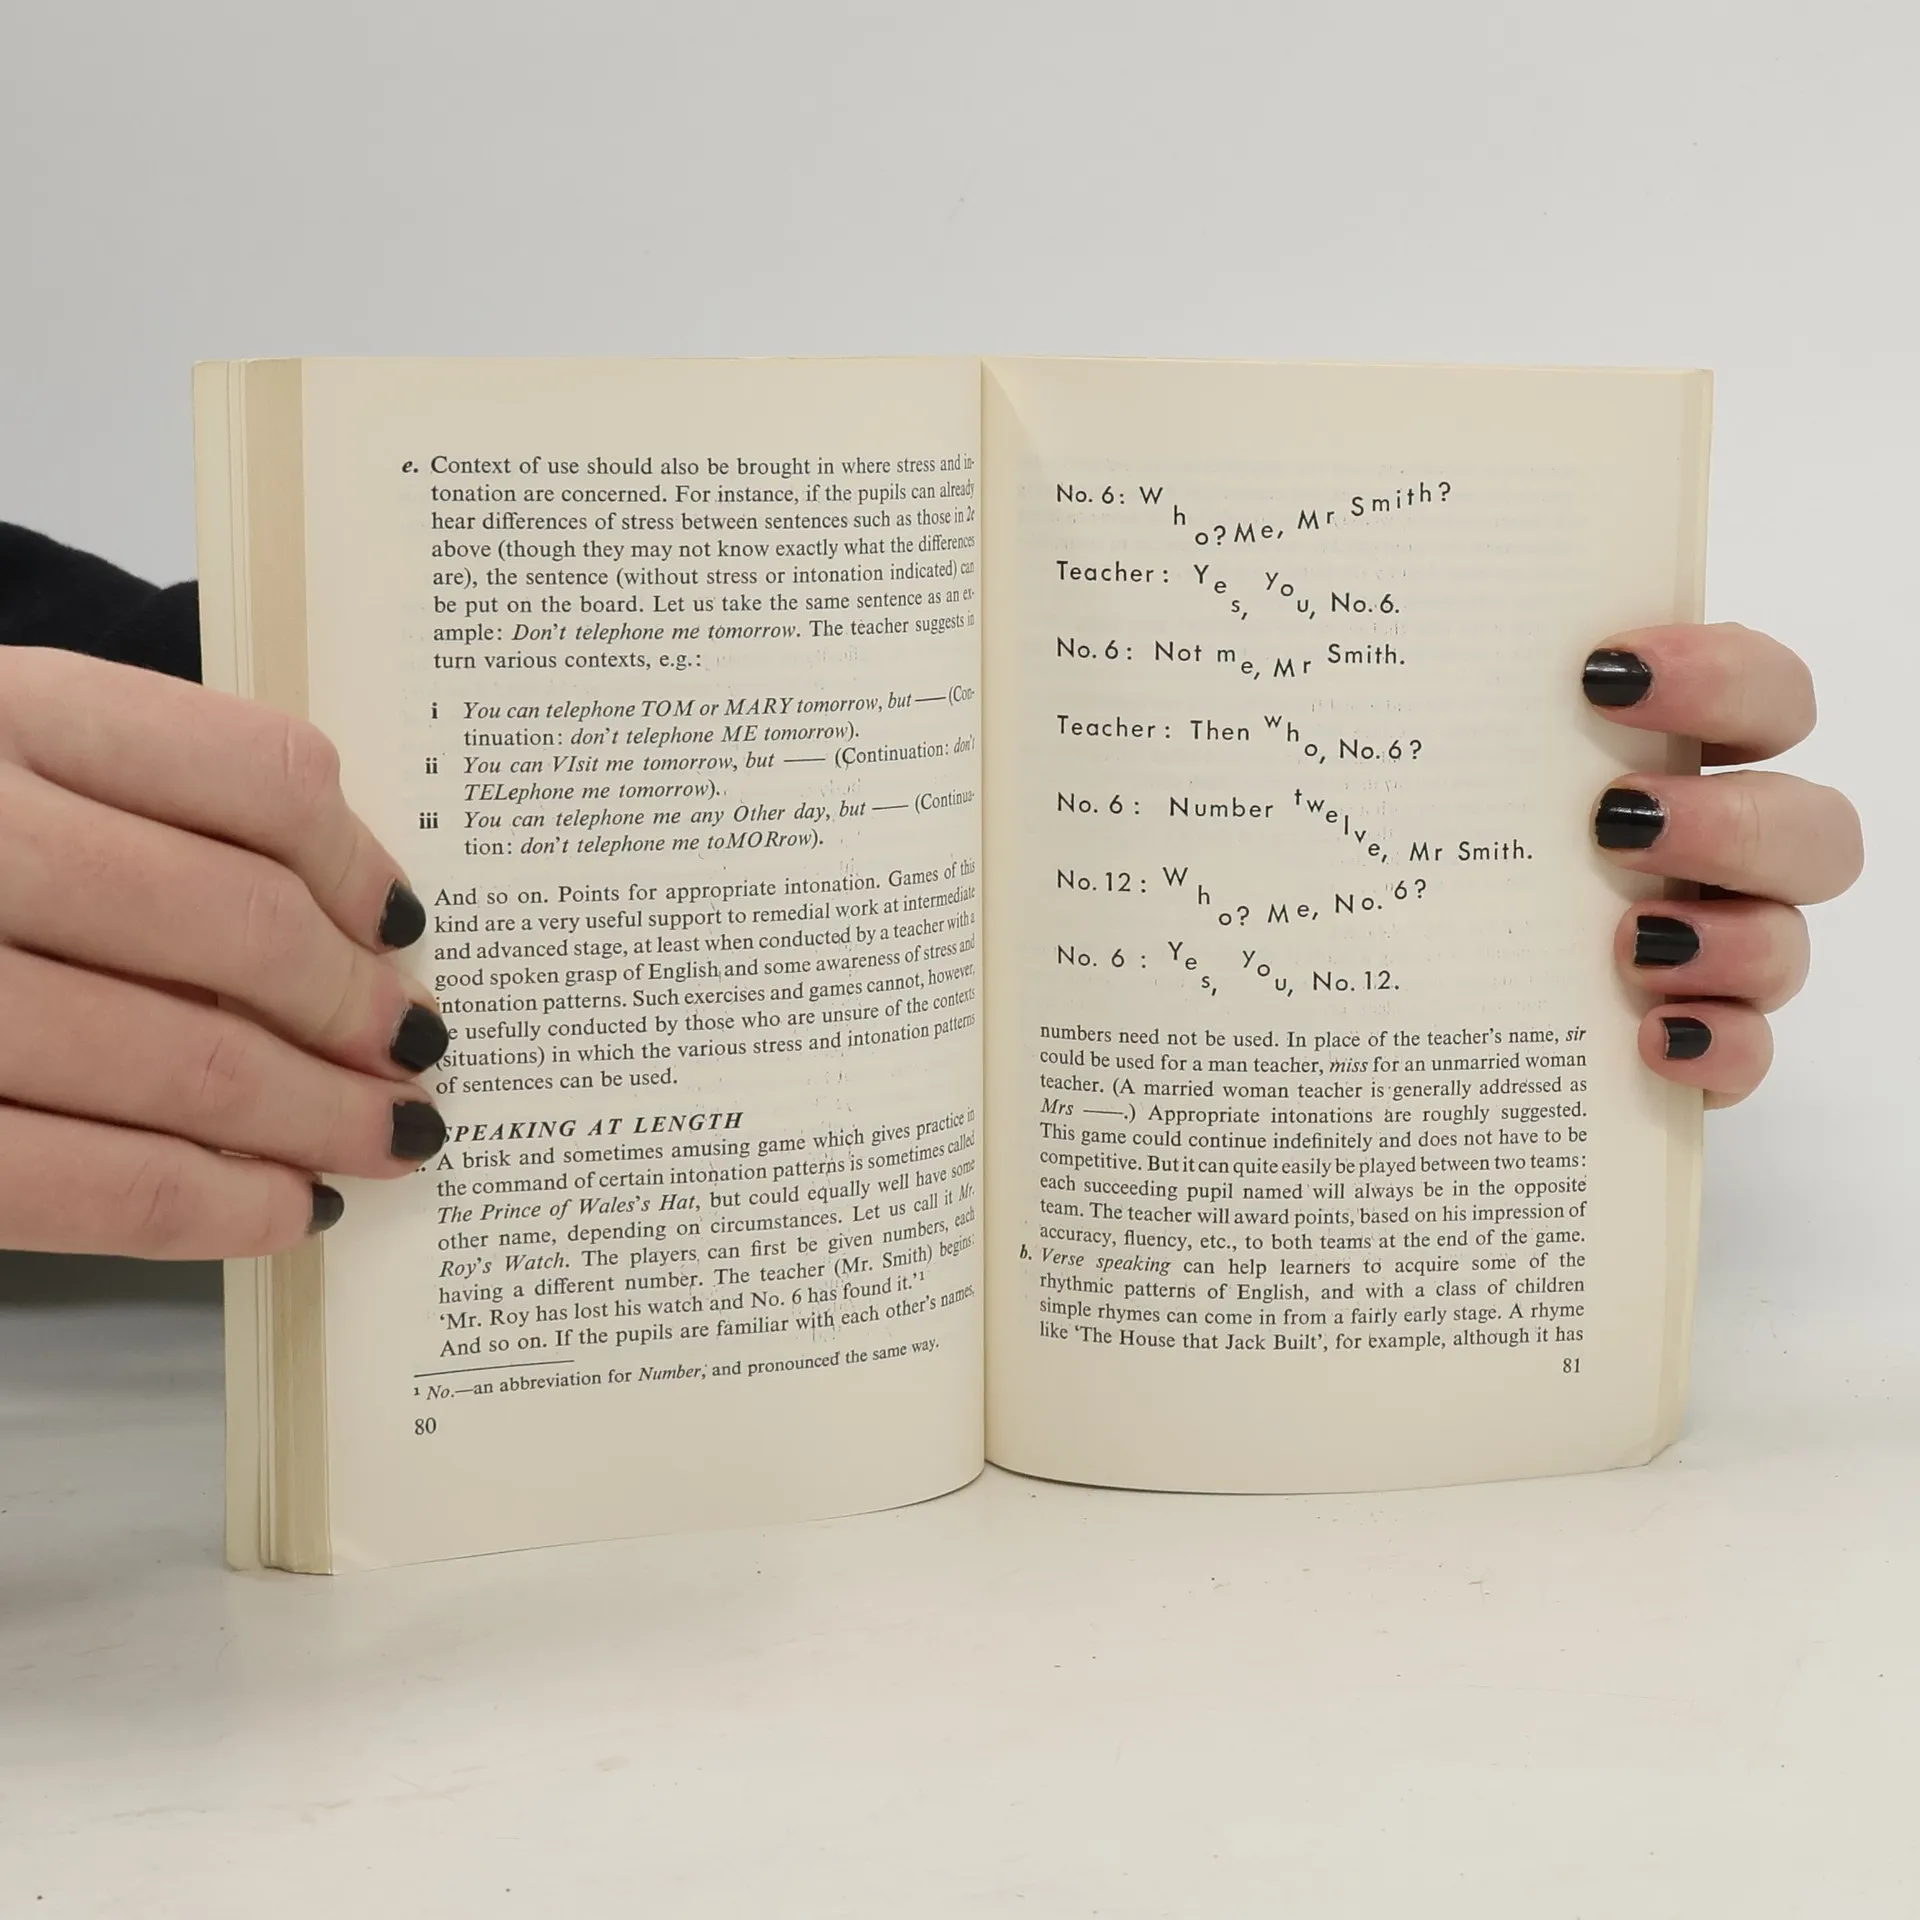 e. Context of use should also be brought in where stress and in-
tonation are concerned. For instance, if the pupils can already
hear differences of stress between sentences such as those in 2e
above (though they may not know exactly what the differences
are), the sentence (without stress or intonation indicated) can
be put on the board. Let us take the same sentence as an ex-
ample: Don't telephone me tomorrow. The teacher suggests in
turn various contexts, e.g.:
i You can telephone TOM or MARY tomorrow, but — (Con-
tinuation: don't telephone ME tomorrow).
ii You can VIsit me tomorrow, but — (Continuation: don't
TELephone me tomorrow).
iii You can telephone me any Other day, but — (Continua-
tion: don't telephone me toMORrow).
And so on. Points for appropriate intonation. Games of this
kind are a very useful support to remedial work at intermediate
and advanced stage, at least when conducted by a teacher with a
good spoken grasp of English and some awareness of stress and
intonation patterns. Such exercises and games cannot, however,
e usefully conducted by those who are unsure of the contexts
(situations) in which the various stress and intonation patterns
of sentences can be used.
SPEAKING AT LENGTH
A brisk and sometimes amusing game which gives practice in
the command of certain intonation patterns is sometimes called
The Prince of Wales's Hat, but could equally well have some
other name, depending on circumstances. Let us call it Mr.
Roy's Watch. The players can first be given numbers, each
having a different number. The teacher (Mr. Smith) begins:
'Mr. Roy has lost his watch and No. 6 has found it.'1
And so on. If the pupils are familiar with each other's names,
1 No.—an abbreviation for Number, and pronounced the same way.
80
No. 6: Who? Me, Mr Smith?
Teacher: Yes, you, No. 6.
No. 6: Not me, Mr Smith.
Teacher: Then who, No. 6?
No. 6: Number twelve, Mr Smith.
No. 12: Who? Me, No. 6?
No. 6: Yes, you, No. 12.
numbers need not be used. In place of the teacher's name, sir
could be used for a man teacher, miss for an unmarried woman
teacher. (A married woman teacher is generally addressed as
Mrs —.) Appropriate intonations are roughly suggested.
This game could continue indefinitely and does not have to be
competitive. But it can quite easily be played between two teams:
each succeeding pupil named will always be in the opposite
team. The teacher will award points, based on his impression of
accuracy, fluency, etc., to both teams at the end of the game.
b. Verse speaking can help learners to acquire some of the
rhythmic patterns of English, and with a class of children
simple rhymes can come in from a fairly early stage. A rhyme
like 'The House that Jack Built', for example, although it has
81